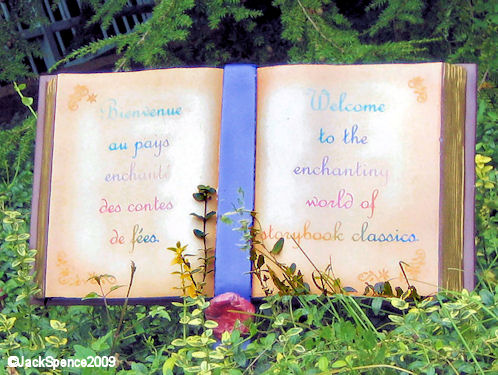 Bienvenue
au pays
enchanté
des contes
de fées.
Welcome
to the
enchanting
world of
storybook classics.
©JackSpence2009